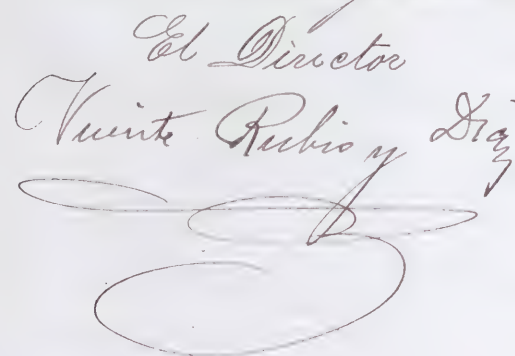 El Director
Vicente Rubio y Diaz